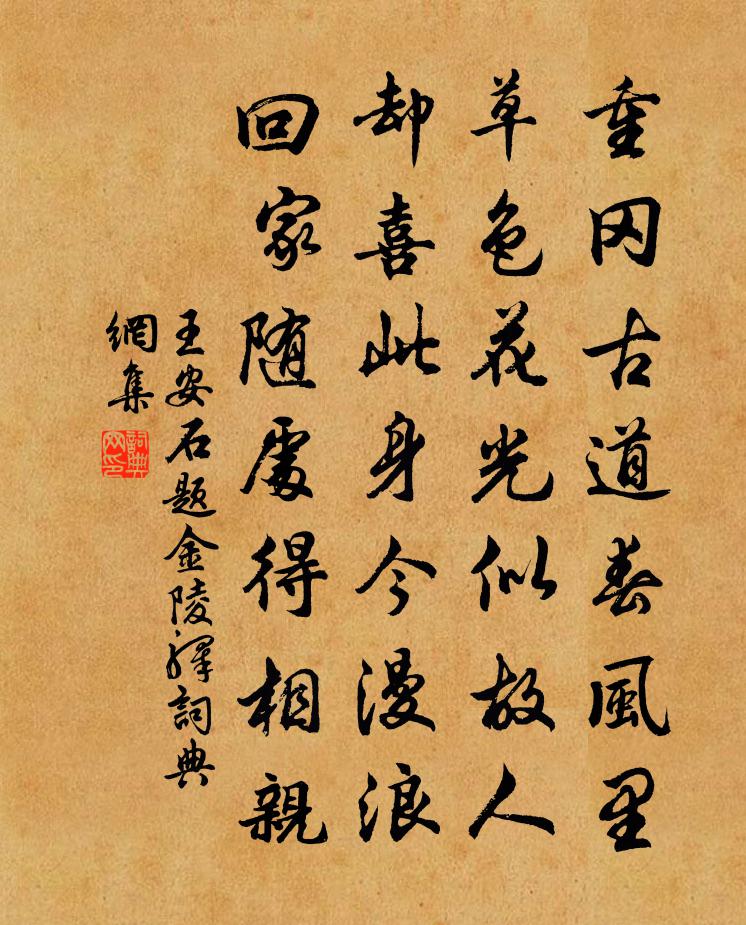 重冈古道春風里
草色花光似故人
却喜此身今漫浪
回家随處得相親
王安石题金陵驛詞典
網集
詞典网印